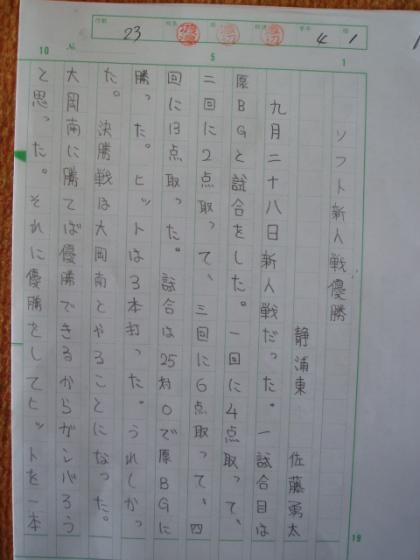 ソフト新人戦優勝
静浦東 佐藤勇太
九月二十八日新人戦だった。一試合目は
原BGと試合をした。一回に4点取って、
二回に2点取って、三回に6点取って、四
回に13点取った。試合は25対0で原BGに
勝った。ヒットは3本打った。うれしかっ
た。決勝戦は大岡南とやることになった。
大岡南に勝てば優勝できるからガンバろう
と思った。それに優勝をしてヒットを一本
10
5
1
19
23
4
1